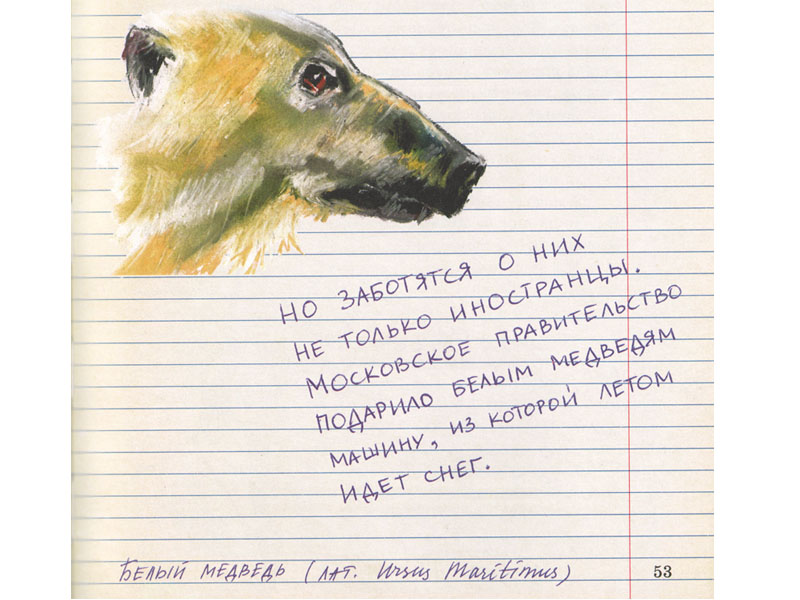 НО ЗАБОТЯТСЯ О НИХ
НЕ ТОЛЬКО ИНОСТРАНЦЫ.
МОСКОВСКОЕ ПРАВИТЕЛЬСТВО
ПОДАРИЛО БЕЛЫМ МЕДВЕДЯМ
МАШИНУ, ИЗ КОТОРОЙ ЛЕТОМ
ИДЕТ СНЕГ.
БЕЛЫЙ МЕДВЕДЬ (ЛАТ. Ursus Maritimus)
53